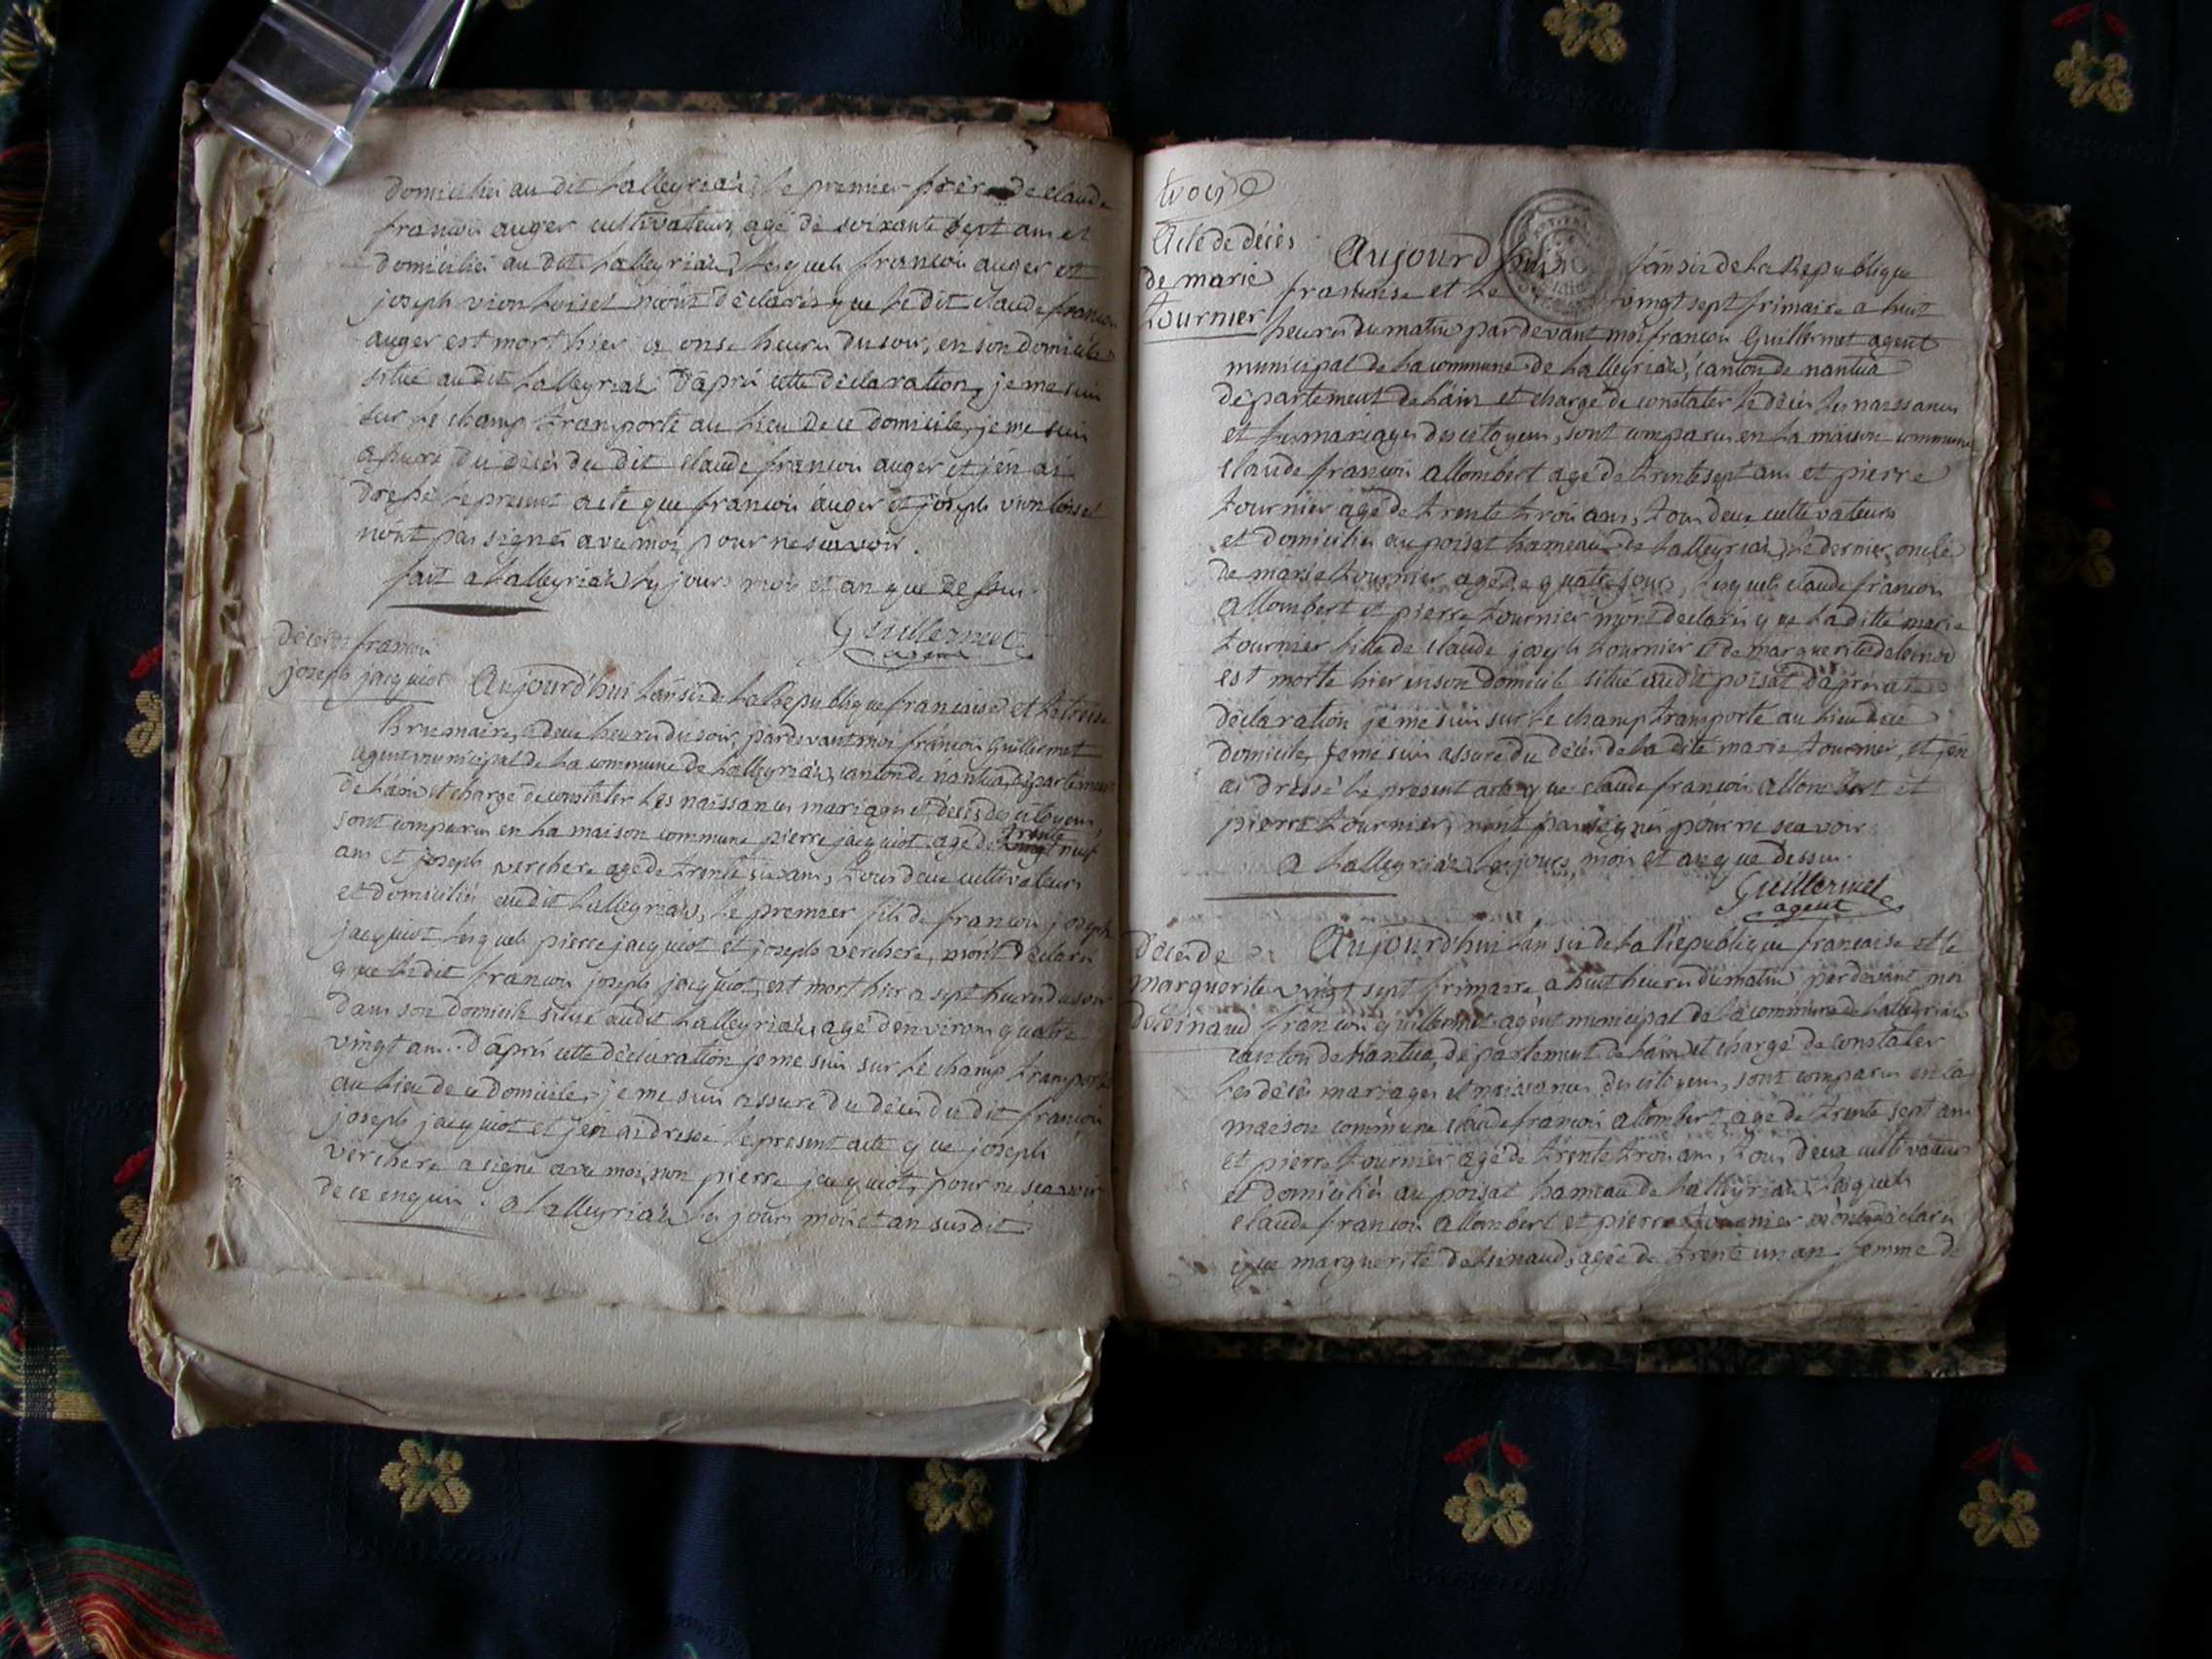 domiciliés au dit Lalleyriat, le premier frère de claude
francois auger cultivateur, agé de soixante sept ans et
domicilié au dit Lalleyriat, lesquels francois auger et
joseph vion Loiset m'ont déclarés que le dit claude francois
auger est mort hier a onse heures du soir, en son domicile
situé au dit Lalleyriat D'après cette déclaration, je me suis
sur le champ transporté au Lieu de ce domicile, je me suis
assuré du décès du dit claude francois auger et j'en ai
dressé le present acte que francois auger et joseph vion Loiset
n'ont pas signés avec moi pour ne scavoir.
fait a Lalleyriat les jours mois et an que dessus
Guillermet
agent
décès de francois
joseph jacquiot
Aujourd'hui L'an six de la Republique francaise et le treise
brumaire, a deux heures du soir, pardevant moi francois Guillermet
agent municipal de la commune de Lalleyriat, canton de nantua, département
de L'ain et chargé de constater les naissances mariages et décès des citoyens,
sont comparus en La maison commune pierre jacquiot agé de trente neuf
ans et joseph verchere agé de trente six ans, tous deux cultivateurs
et domiciliés audit Lalleyriat, le premier fils de francois joseph
jacquiot lesquels pierre jacquiot et joseph verchere, m'ont déclarés
que ledit francois joseph jacquiot, est mort hier a sept heures du soir
dans son domicile situé audit Lalleyriat, agé d'environs quatre
vingt ans. D'après cette déclaration je me suis sur le champ transporté
au Lieu de ce domicile, je me suis assuré du décès du dit francois
joseph jacquiot et j'en ai dressé le present acte que joseph
verchere a signé avec moi, non pierre jacquiot, pour ne scavoir
de ce enquis. a Lalleyriat les jours mois et an susdit.
Acte de décès
de marie
tournier
Aujourd'hui L'an six de La Republique
francaise et le vingt sept frimaire a huit
heures du matin pardevant moi francois Guillermet agent
municipal de la commune de Lalleyriat, canton de nantua
département de L'ain et chargé de constater le décès les naissances
et les mariages des citoyens, sont comparus en La maison commune
claude francois allombert agé de trente sept ans et pierre
tournier agé de trente trois ans, tous deux cultivateurs
et domiciliés au poisat hameau de Lalleyriat, le dernier oncle
de marie tournier agée de quatre jours, lesquels claude francois
allombert et pierre tournier m'ont declarés que La ditte marie
tournier fille de claude joseph tournier et de marguerite
est morte hier en son domicile situé audit poisat d'après cette
déclaration je me suis sur le champ transporté au Lieu de ce
domicile, je me suis assuré du décès de La dite marie tournier, et j'en
ai dressé le present acte que claude francois allombert et
pierre tournier, n'ont pas signés pour ne scavoir
a Lalleyriat les jours, mois et an que dessus.
Guillermet
agent
décès de
marguerite
Aujourd'hui L'an six de La Republique francaise et le
vingt sept frimaire a huit heures du matin pardevant moi
francois guillermet agent municipal de la commune de Lalleyriat
canton de Nantua, département de L'ain et chargé de constater
les décès mariages et naissances des citoyens, sont comparus en la
maison commune claude francois allombert, agé de trente sept ans
et pierre tournier agé de trente trois ans, tous deux cultivateurs
et domiciliés au poisat hameau de Lalleyriat, lesquels
claude francois allombert et pierre tournier m'ont déclarés
que marguerite agée de trente un an femme de